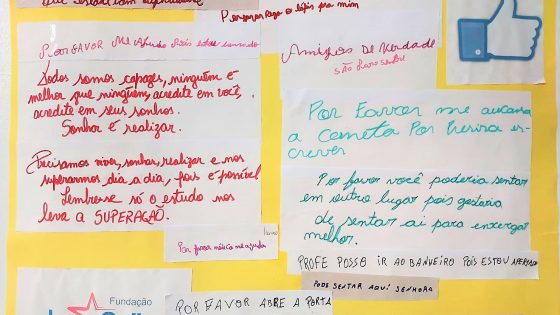 Por favor pega o lápis pra mim
POR FAVOR Me Ajuda
Amigos De Verdade
São Para Sempre
Todos somos capazes, ninguém é
melhor que ninguém, acredite em você,
acredite em seus sonhos.
Sonhar é realizar.
Precisamos viver, sonhar, realizar e nos
superarmos dia a dia, pois é possível
Lembresse só o estudo nos
leva a SUPERAÇÃO.
Por Favor me
a caneta Por
crever
Por favor você poderia sentar
em outro lugar pois gostaria
de sentar ai para enxergar
melhor.
Por favor me ajuda
PROFE POSSO IR AO BANHEIRO POIS ESTOU
PODE SENTAR AQUÍ SENHORA
Fundação
POR FAVOR ABRE A PORTA